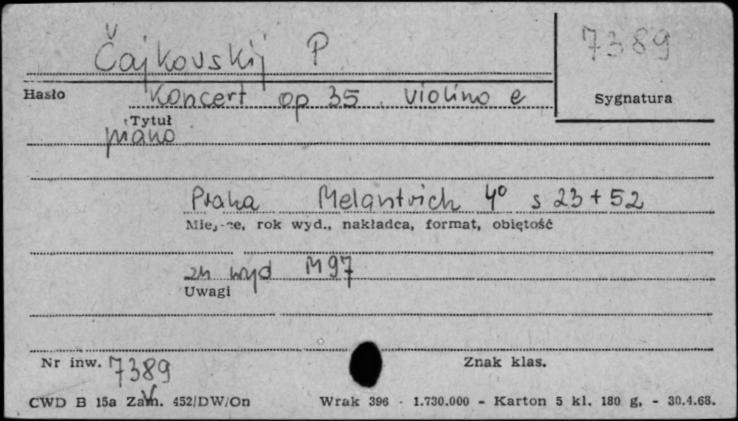 Čajkovskij P
7389
Hasło
Koncert op 35. violino e
Sygnatura
Tytuł
piano
Praha Melantrich 4° s 23+52
Miejsce, rok wyd., nakładca, format, obiętość
zn wyd M97
Uwagi
Nr inw. 7389
Znak klas.
CWD B 15a Zam. 452/DW/On
Wrak 396 - 1.730.000 - Karton 5 kl. 180 g, - 30.4.68.